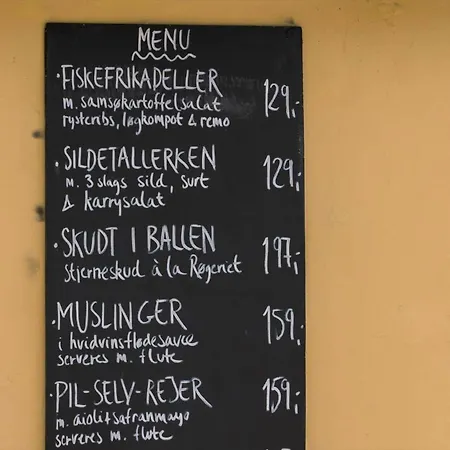 MENU
· FISKEFRIKADELLER 129,-
m. samsøkartoffelsalat
rysteribs, løgkompot & remo
· SILDETALLERKEN 129,-
m. 3 slags sild, surt
& karrysalat
· SKUDT I BALLEN 197,-
Stjerneskud à la Røgeriet
· MUSLINGER 159,-
i hvidvinsflødesauce
serveres m. flute
· PIL-SELV-REJER 159,-
m. aioli & safranmayo
serveres m. flute